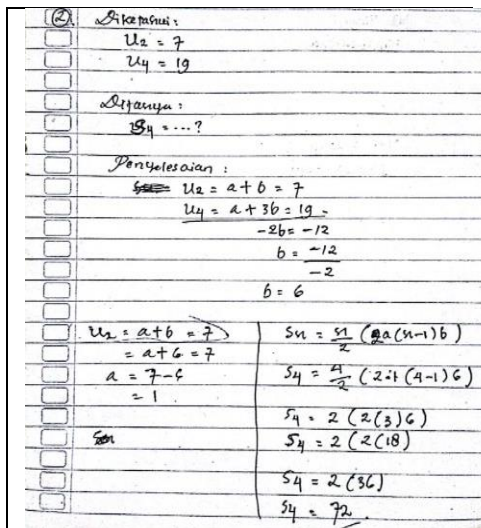 ②. Diketahui :
U2 = 7
U4 = 19
Ditanya :
S4 = ... ?
Penyelesaian :
U2 = a + b = 7
U4 = a + 3b = 19 -
-2b = -12
b = -12
-2
b = 6
U2 = a + b = 7
= a + 6 = 7
a = 7 - 6
= 1
Sn = n/2 (2a(n-1)b)
S4 = 4/2 (2·1(4-1)6)
S4 = 2 (2(3)6)
S4 = 2 (2(18)
S4 = 2 (36)
S4 = 72.